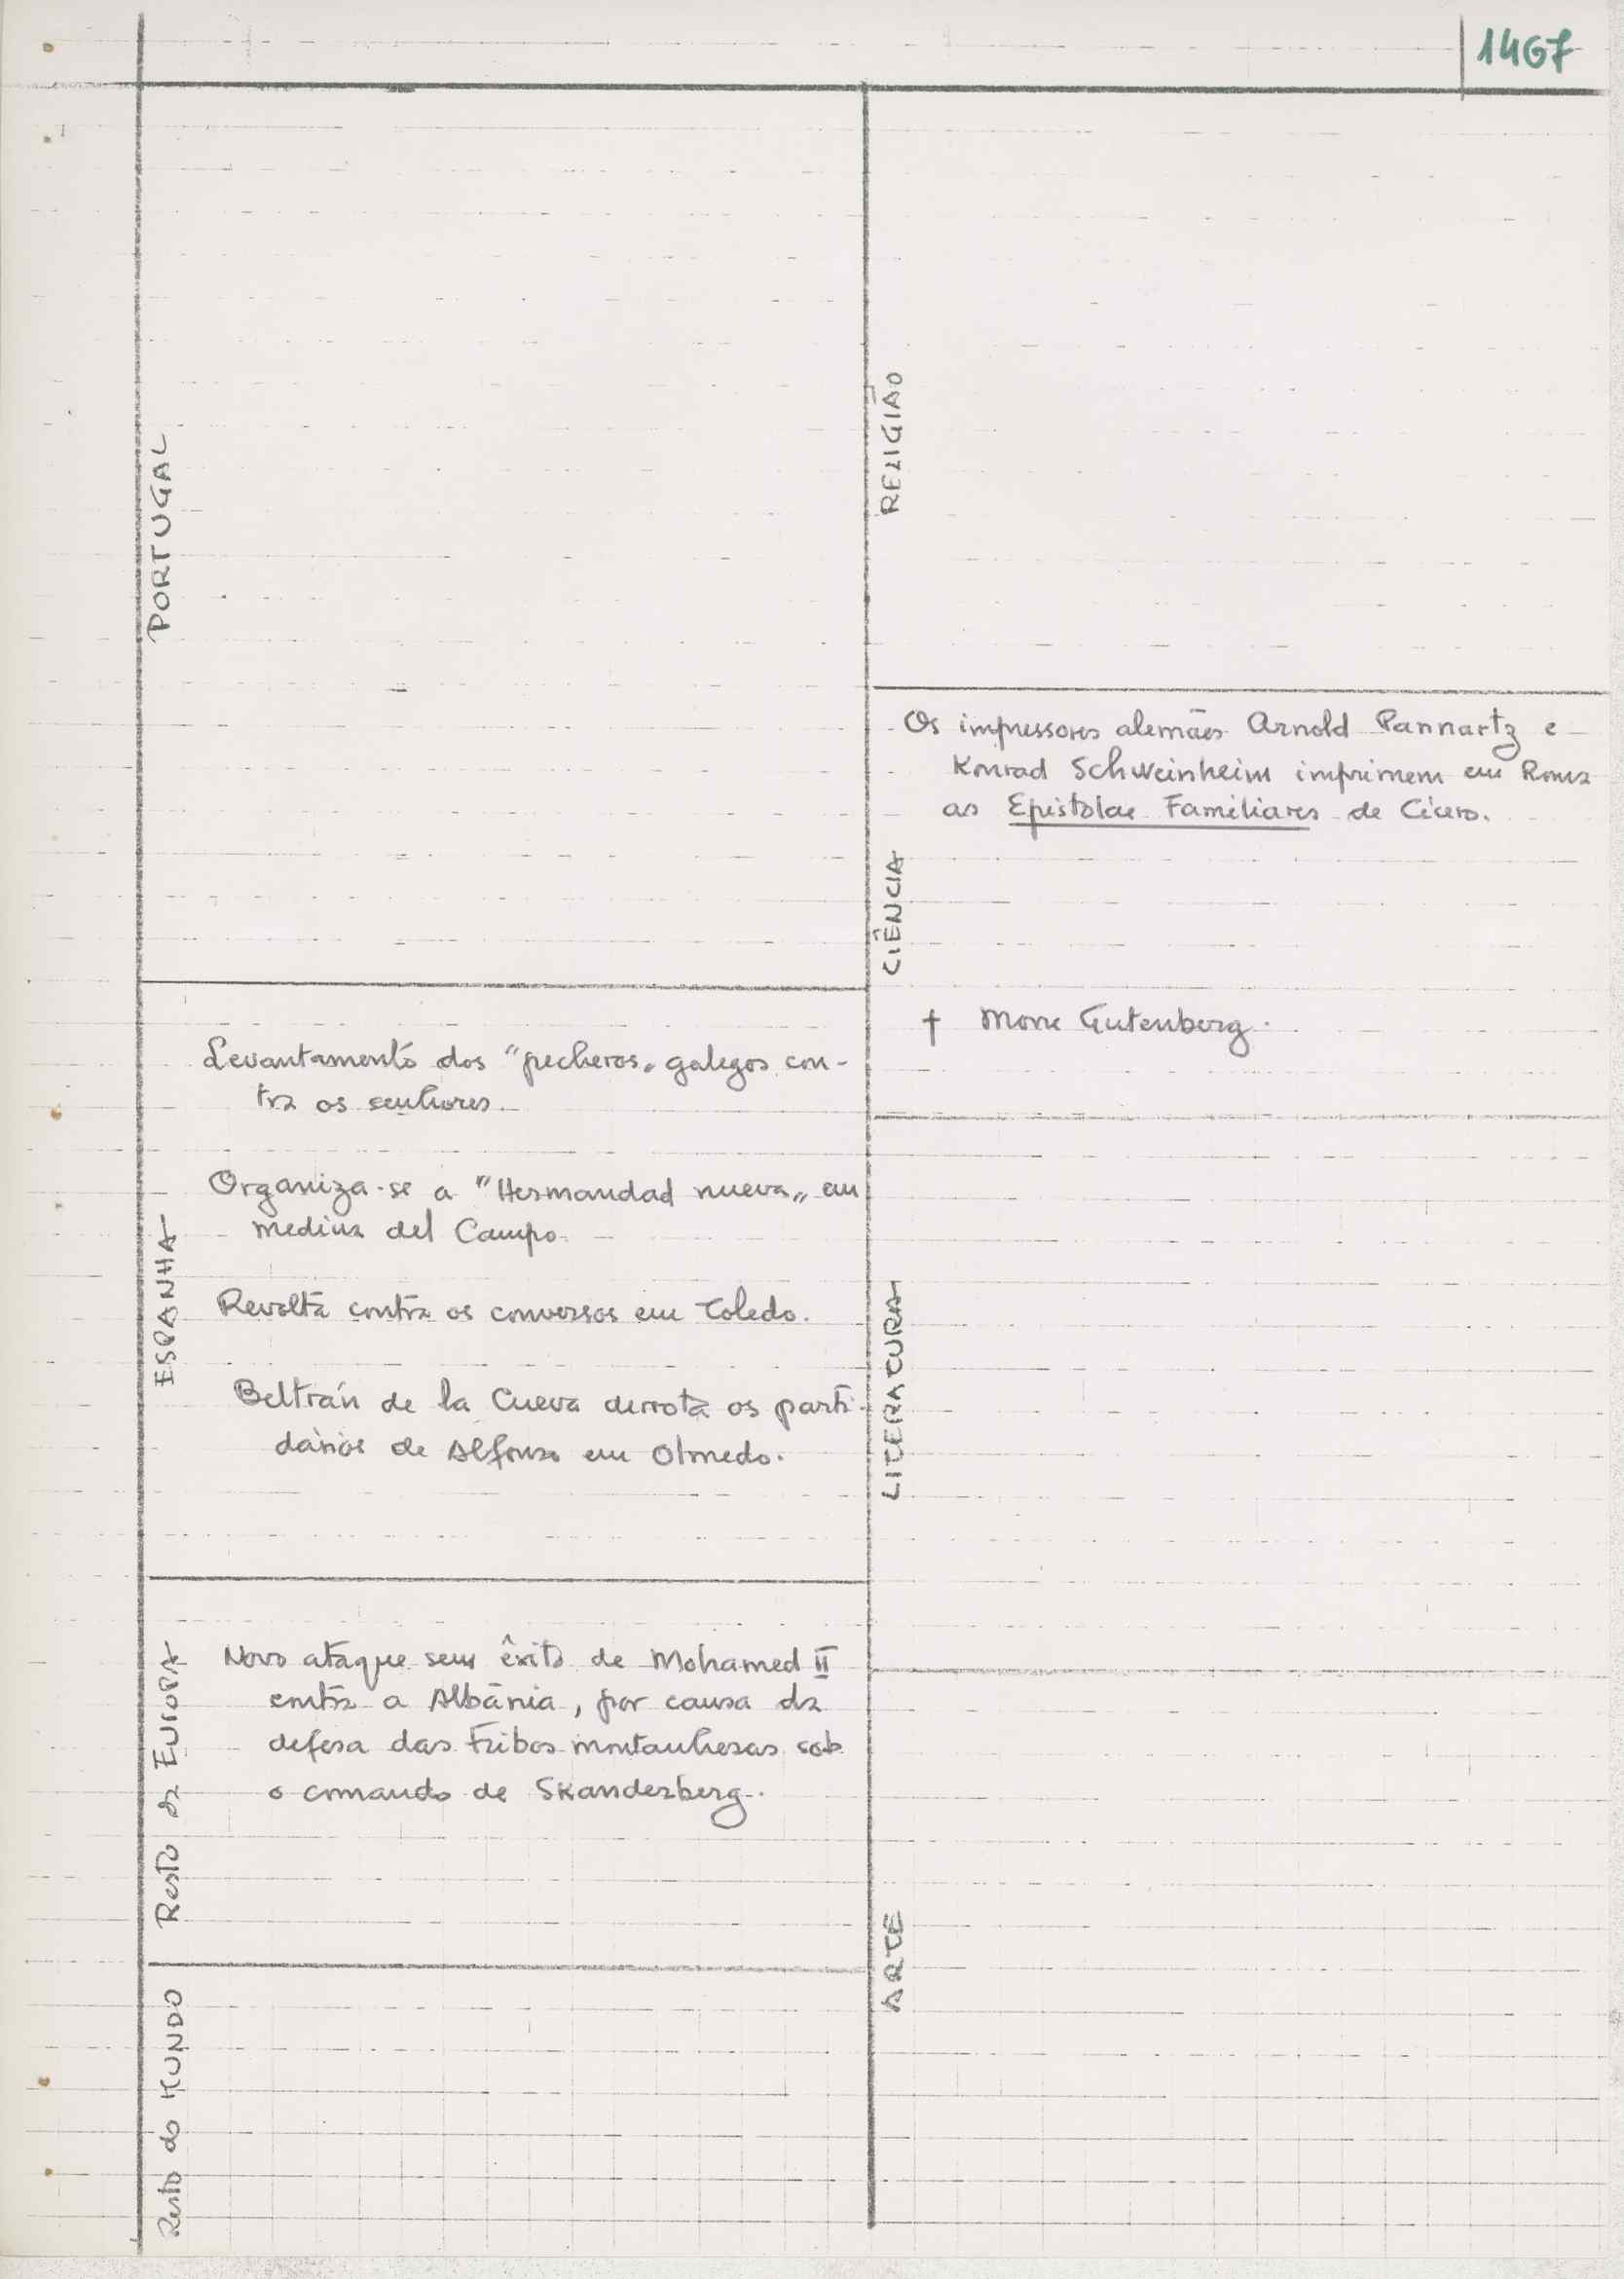 1467
PORTUGAL
ESPANHA
Levantamento dos "pecheros" galegos con-
tra os senhores
Organiza-se a "Hermandad nueva" em
Medina del Campo.
Revolta contra os conversos em Toledo.
Beltrán de la Cueva derrota os parti-
dários de Alfonso em Olmedo.
Resto da EUROPA
Novo ataque sem êxito de Mohamed II
contra a Albânia, por causa da
defesa das tribos montanhesas sob
o comando de Skanderberg.
Resto do MUNDO
RELIGIÃO
CIÊNCIA
Os impressores alemães Arnold Pannartz e
Konrad Schweinheim imprimem em Roma
as Epistolae Familiares de Cícero.
† Morre Gutenberg.
LITERATURA
ARTE